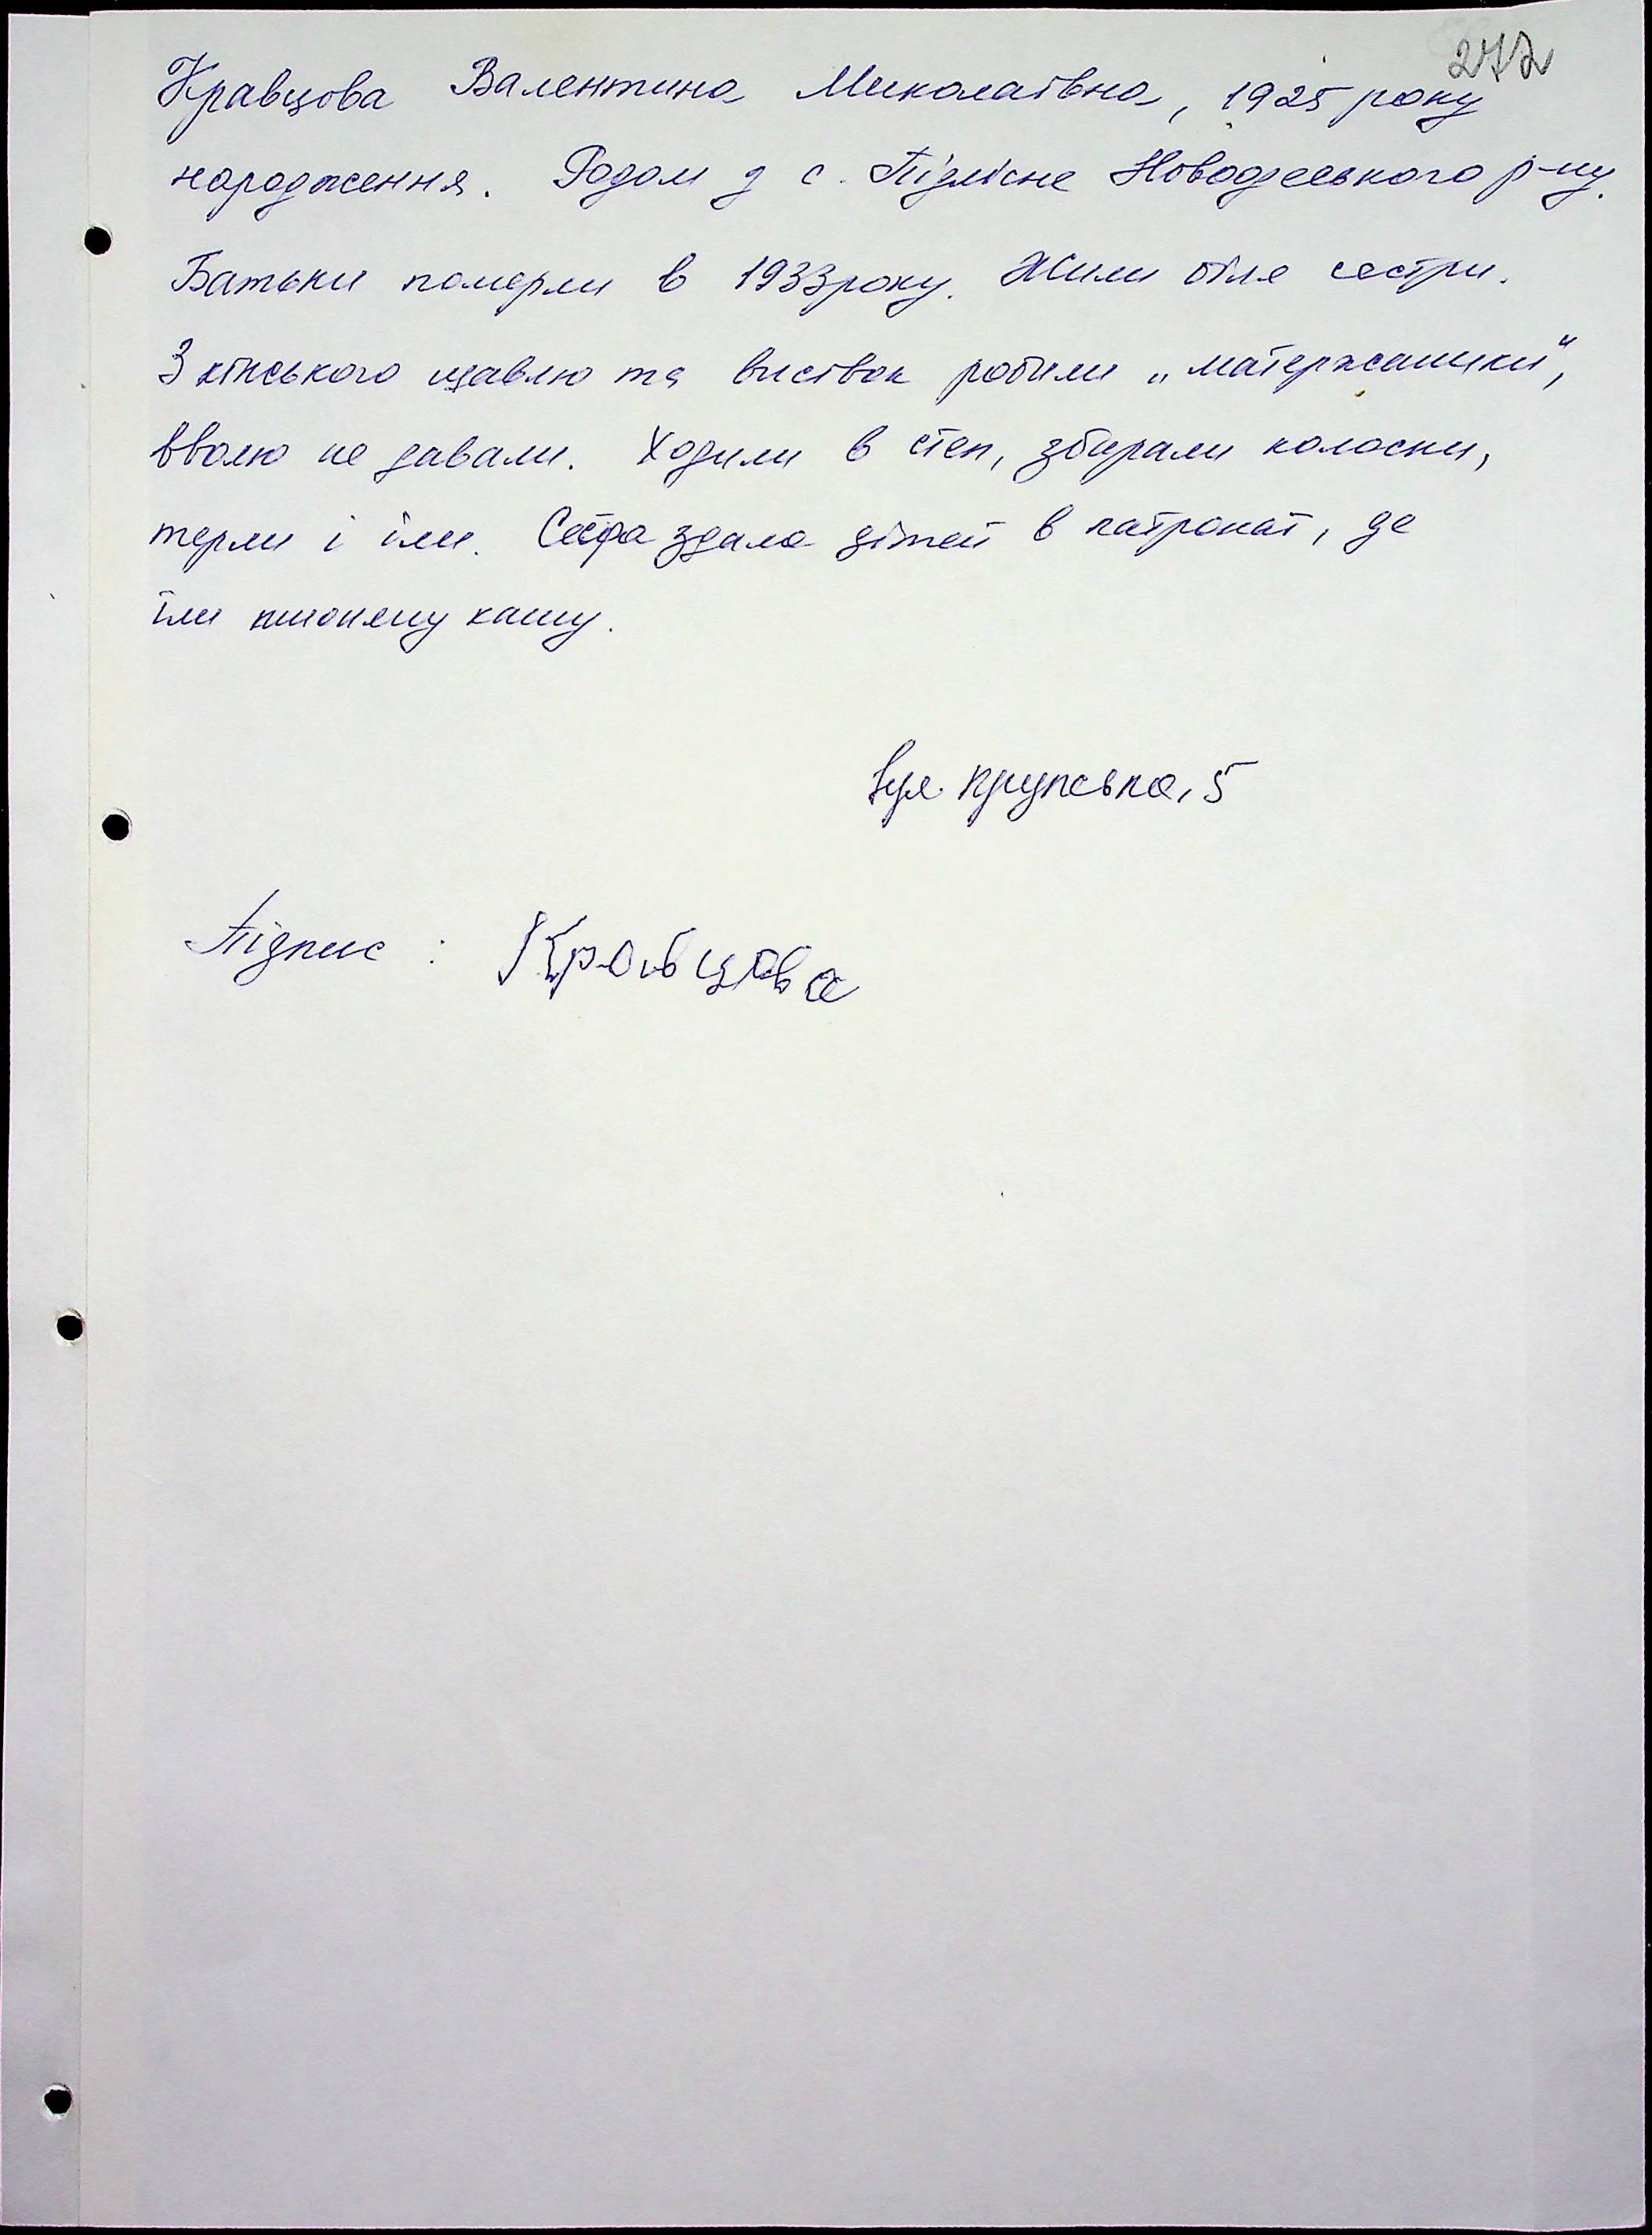 272
Кравцова Валентина Миколаївна, 1925 року
народження. Родом з с. Підлісне Новоодеського р-ну.
Батьки померли в 1933 року. Жили біля сестри.
З кінського щавлю та висівок робили „матержаники",
вволю не давали. Ходили в степ, збирали колоски,
терли і їли. Сестра здала дітей в патронат, де
їли пшоняну кашу.
вул. Крупська, 5
Підпис : Кравцова